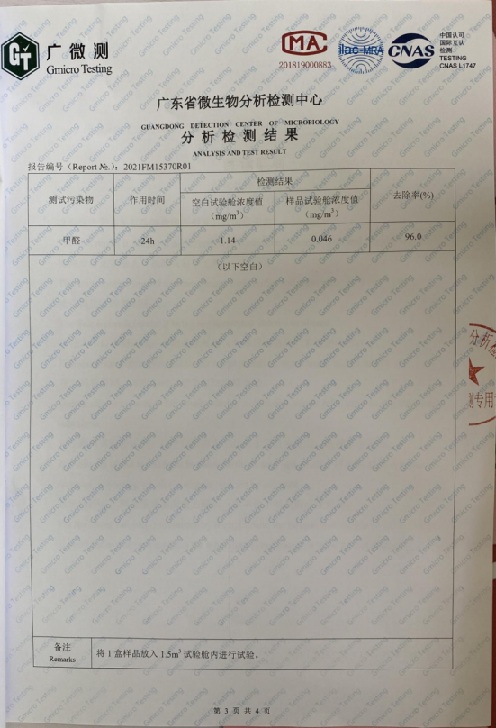 GT 广微测
Gmicro Testing
MA
201819000883
ilac-MRA
CNAS
中国认可
国际互认
检测
TESTING
CNAS L1747
广东省微生物分析检测中心
GUANGDONG DETECTION CENTER OF MICROBIOLOGY
分析检测结果
ANALYSIS AND TEST RESULT
报告编号（Report №.）：2021FM15370R01
测试污染物 作用时间 检测结果 去除率(%)
空白试验舱浓度值 样品试验舱浓度值
(mg/m³) (mg/m³)
甲醛 24h 1.14 0.046 96.0
（以下空白）
分析检
测专用
备注
Remarks
将 1 盒样品放入 1.5m³ 试验舱内进行试验。
第 3 页 共 4 页